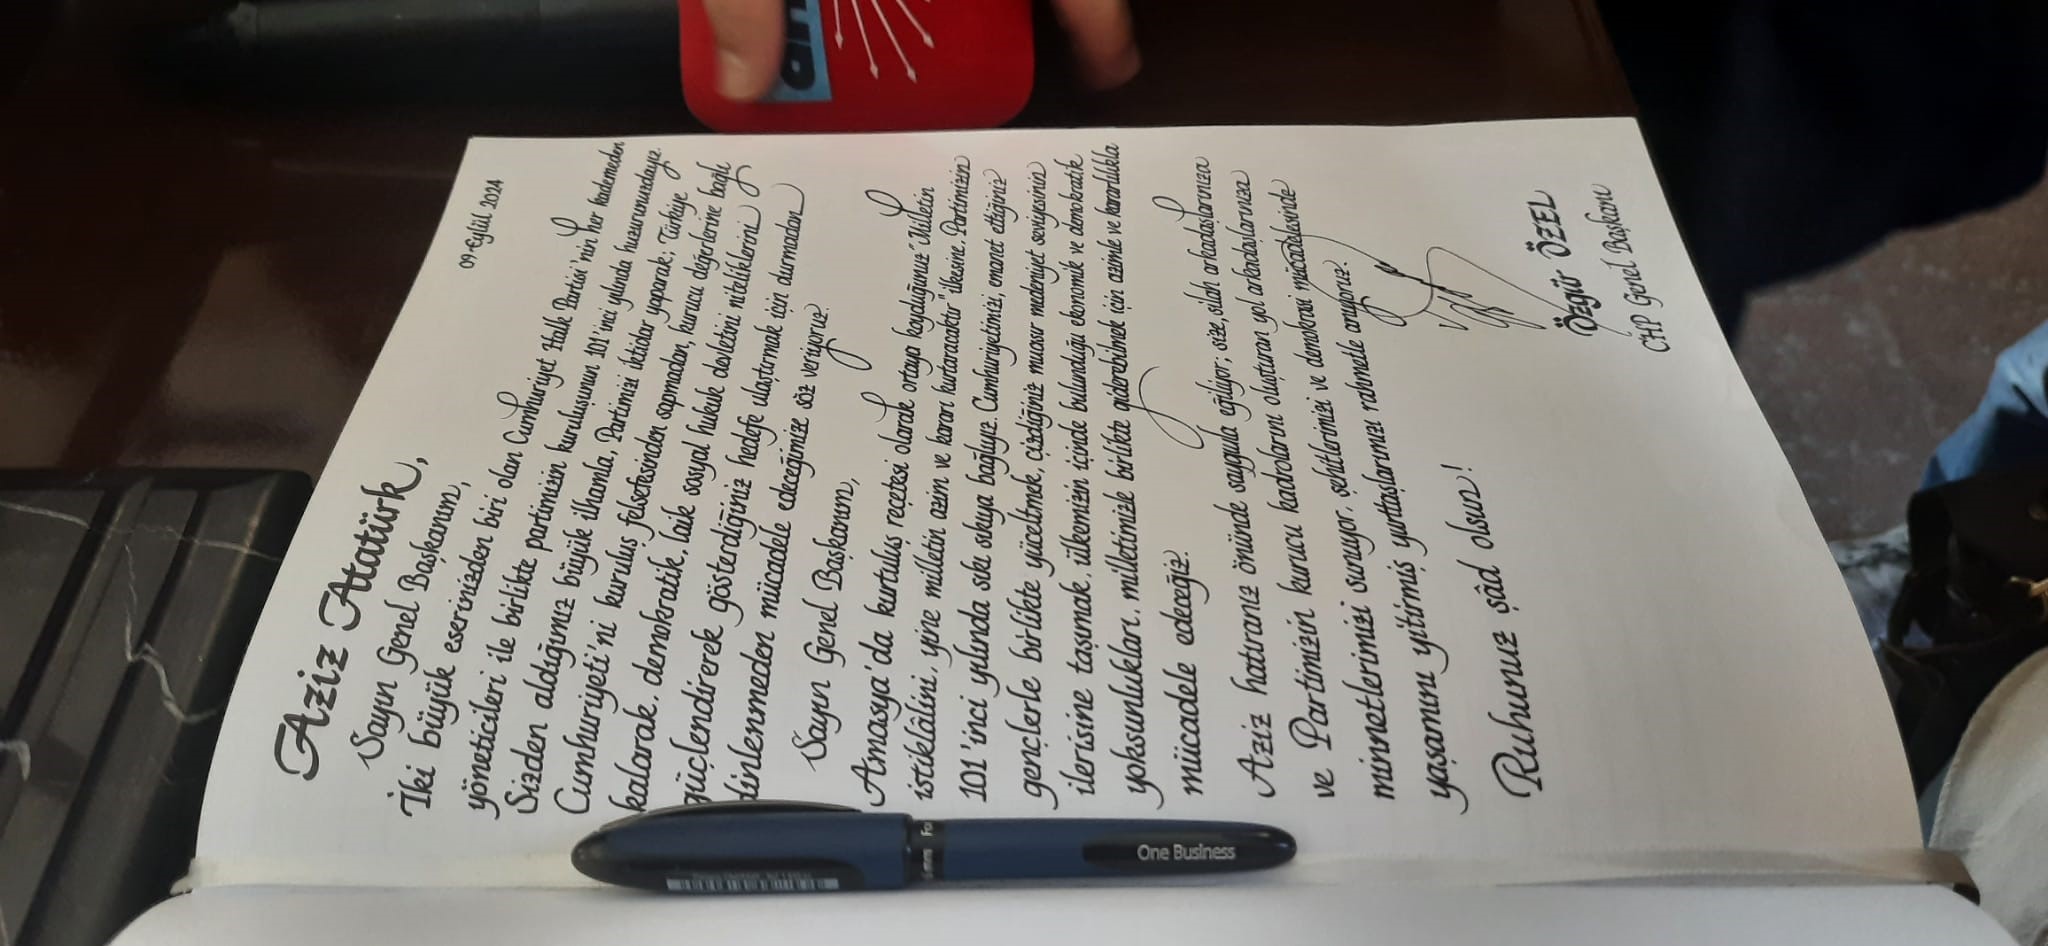 09 Eylül 2024
Aziz Atatürk,
Sayın Genel Başkanım,
İki büyük eserinizden biri olan Cumhuriyet Halk Partisi'nin her kademeden
yöneticileri ile birlikte partimizin kuruluşunun 101'inci yılında huzurunuzdayız.
Sizden aldığımız büyük ilhamla, Partimizi iktidar yaparak, Türkiye
Cumhuriyeti'ni kuruluş felsefesinden sapmadan, kurucu değerlerine bağlı
kalarak, demokratik, laik sosyal hukuk devletini niteliklerini
güçlendirerek gösterdiğiniz hedefe ulaştırmak için durmadan
dinlenmeden mücadele edeceğimize söz veriyoruz.
Sayın Genel Başkanım,
Amasya'da kurtuluş reçetesi olarak ortaya koyduğumuz "Milletin
istiklâlini, yine milletin azim ve kararı kurtaracaktır" ilkesine, Partimizin
101'inci yılında sıkı sıkıya bağlıyız. Cumhuriyetimizi, emanet ettiğiniz
gençlerle birlikte yüceltmek, çizdiğiniz muasır medeniyet seviyesinin
ilerisine taşımak, ülkemizin içinde bulunduğu ekonomik ve demokratik
yoksunlukları, milletimizle birlikte giderebilmek için azimle ve kararlılıkla
mücadele edeceğiz.
Aziz hatıranız önünde saygıyla eğiliyor; size, silah arkadaşlarınıza
ve Partimizin kurucu kadrolarını oluşturan yol arkadaşlarınıza
minnetlerimizi sunuyor, şehitlerimizi ve demokrasi mücadelesinde
yaşamını yitirmiş yurttaşlarımızı rahmetle anıyoruz.
Ruhunuz şâd olsun!
Özgür ÖZEL
CHP Genel Başkanı
One Business